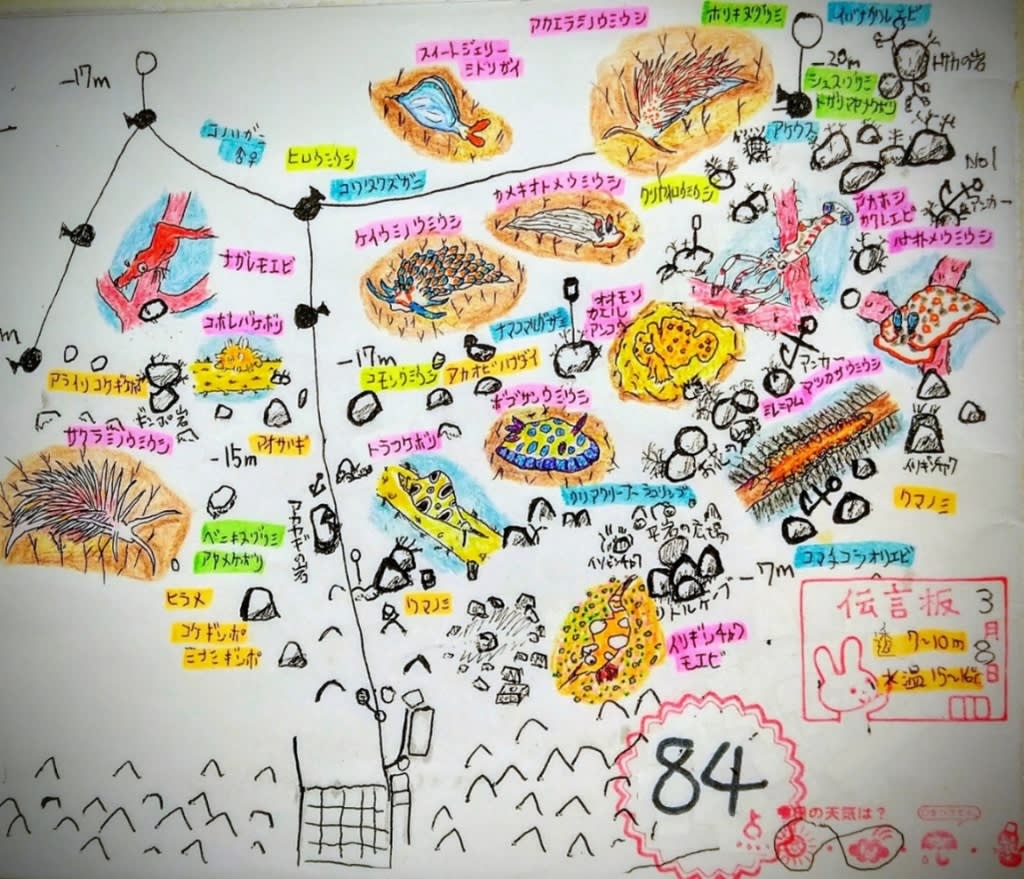 アカエラミノウミウシ
ホリキヌヅツミ
イバラカクレエビ
スイートジェリー
ミドリガイ
-17m
-20m
トサカの岩
シュスヅツミ
トガリマヤナウボリ
アケウス
コノハガニ
♂♀
ヒロウミウシ
コワタクズガニ
カメキオトメウミウシ
クリヤイロウミウシ
No1
アンカー
アカホシ
カクレエビ
ハナオトメウミウシ
ケイウミノウミウシ
ナガレモエビ
コボレバケボリ
ナマコマルガザミ
オオモン
カエル
アンコウ
-17m
コモンウミウシ
アカオビハナダイ
アンカー
ミレニアム
マツカサウミウシ
アライソコケギンポ
ギンポ岩
サクラミノウミウシ
アオサハギ
-15m
トラフケボリ
ボブサンウミウシ
クリアクリーナーシュリンプ
イソギンチャク
クマノミ
アカヤギの岩
ベニキヌヅツミ
アヤメケボリ
平岩の広場
コマチコシオリエビ
-7m
ヒラメ
コケギンポ
ミナミギンポ
クマノミ
リトルケーブ
イソギンチャク
モエビ
伝言板
3月8日
透 7~10m
水温 15~16℃
84
の天気は?